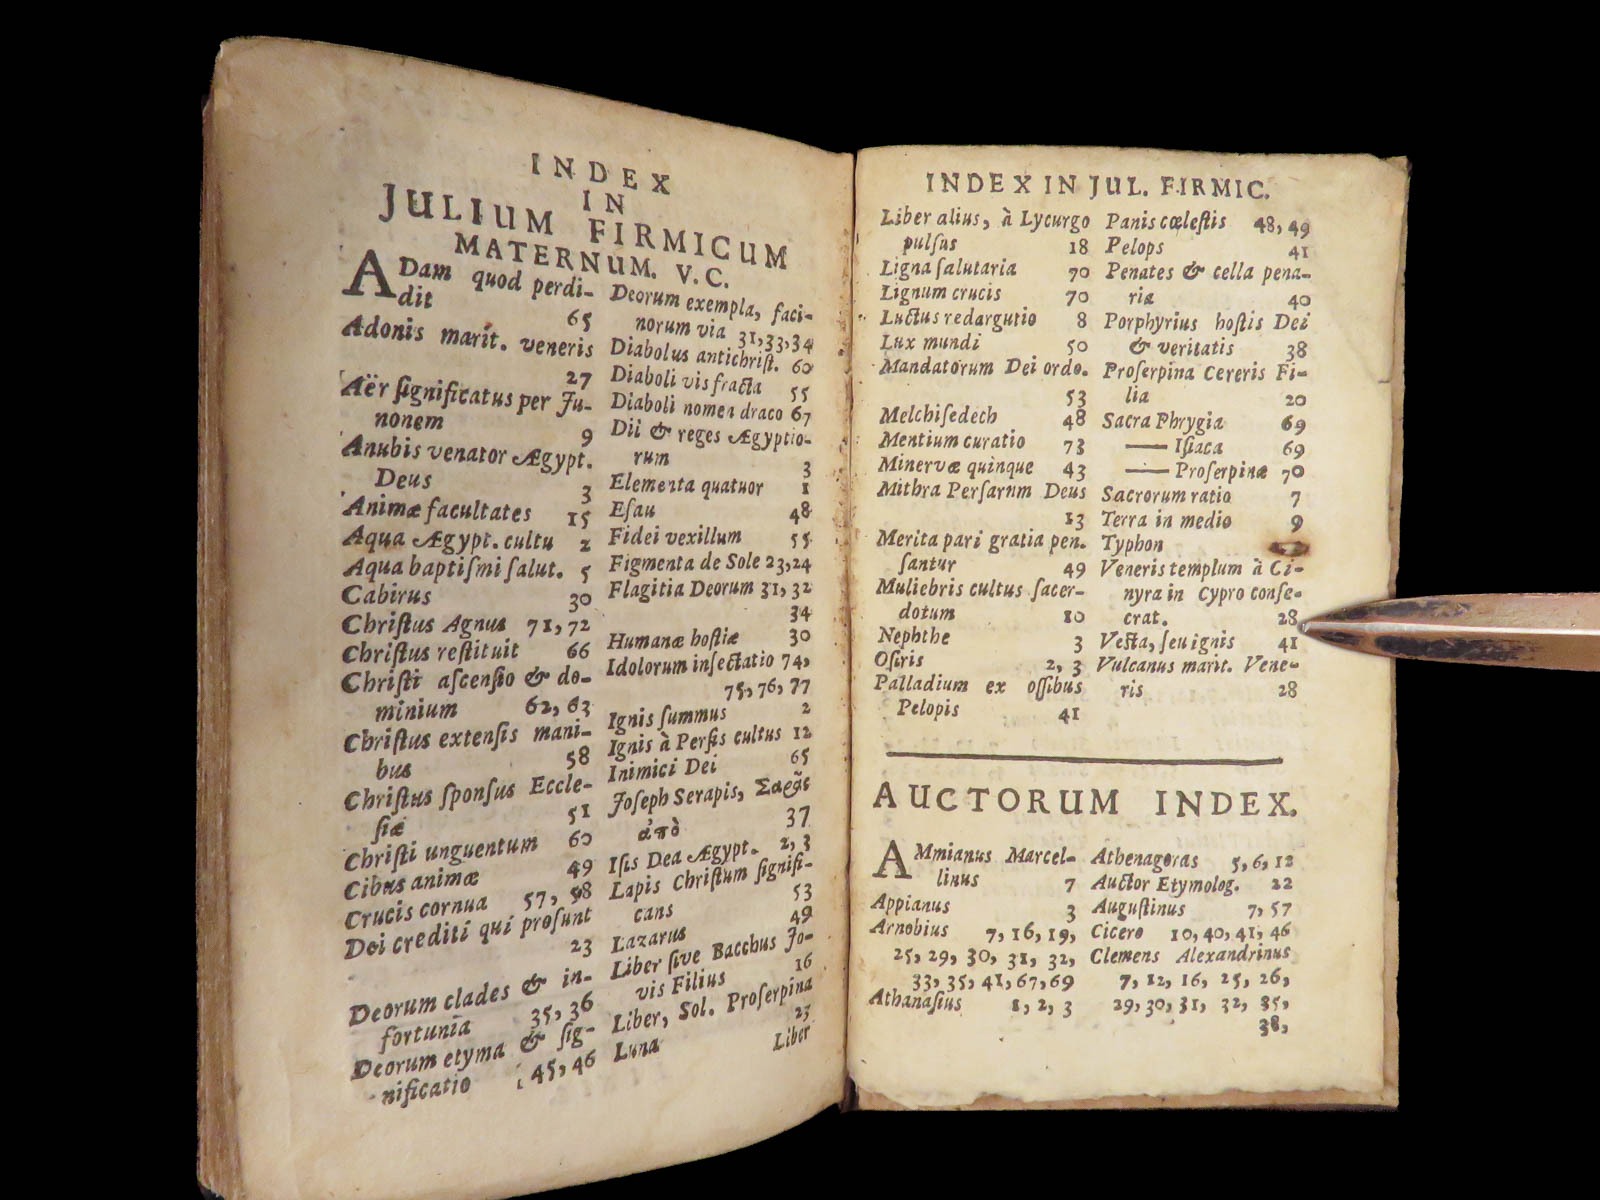 INDEX
IN
JULIUM FIRMICUM
MATERNUM. V. C.
ADam quod perdi-
dit 65
Adonis marit. veneris
27
Aër ſignificatus per Ju-
nonem 9
Anubis venator Ægypt.
Deus 3
Animæ facultates 15
Aqua Ægypt. cultu 2
Aqua baptiſmi ſalut. 5
Cabirus 30
Chriſtus Agnus 71, 72
Chriſtus reſtituit 66
Chriſti aſcenſio & do-
minium 62, 63
Chriſtus extenſis mani-
bus 58
Chriſtus ſponſus Eccle-
ſiæ 51
Chriſti unguentum 60
Cibus animæ 49
Crucis cornua 57, 58
Dei crediti qui proſunt
23
Deorum clades & in-
fortunia 35, 36
Deorum etyma & ſig-
nificatio 45, 46
Deorum exempla, faci-
norum via 31, 33, 34
Diabolus antichriſt. 60
Diaboli vis fracta 55
Diaboli nomen draco 67
Dii & reges Ægyptio-
rum 3
Elementa quatuor 1
Eſau 48
Fidei vexillum 55
Figmenta de Sole 23, 24
Flagitia Deorum 31, 32
34
Humanæ hoſtiæ 30
Idolorum inſectatio 74,
75, 76, 77
Ignis ſummus 2
Ignis à Perſis cultus 12
Inimici Dei 65
Joſeph Serapis,
ἀπὸ 37
Iſis Dea Ægypt. 2, 3
Lapis Chriſtum ſignifi-
cans 53
Lazarus 49
Liber ſive Bacchus Jo-
vis Filius 16
Liber, Sol. Proſerpina
Luna 23
Liber
INDEX IN JUL. FIRMIC.
Liber alius, à Lycurgo
pulſus 18
Ligna ſalutaria 70
Lignum crucis 70
Luctus redargutio 8
Lux mundi 50
Mandatorum Dei ordo.
53
Melchiſedech 48
Mentium curatio 73
Minervæ quinque 43
Mithra Perſarum Deus
13
Merita pari gratia pen-
ſantur 49
Muliebris cultus ſacer-
dotum 10
Nephthe 3
Oſiris 2, 3
Palladium ex oſſibus
Pelopis 41
Panis cœleſtis 48, 49
Pelops 41
Penates & cella pena-
ria 40
Porphyrius hoſtis Dei
& veritatis 38
Proſerpina Cereris Fi-
lia 20
Sacra Phrygia 69
—— Iſiaca 69
—— Proſerpinæ 70
Sacrorum ratio 7
Terra in medio 9
Typhon
Veneris templum à Ci-
nyra in Cypro conſe-
crat. 28
Veſta, ſeu ignis 41
Vulcanus marit. Vene-
ris 28
AUCTORUM INDEX.
AMmianus Marcel-
linus 7
Appianus 3
Arnobius 7, 16, 19,
25, 29, 30, 31, 32,
33, 35, 41, 67, 69
Athanaſius 1, 2, 3
Athenagoras 5, 6, 12
Auctor Etymolog. 22
Auguſtinus 7, 57
Cicero 10, 40, 41, 46
Clemens Alexandrinus
7, 12, 16, 25, 26,
29, 30, 31, 32, 35,
38,